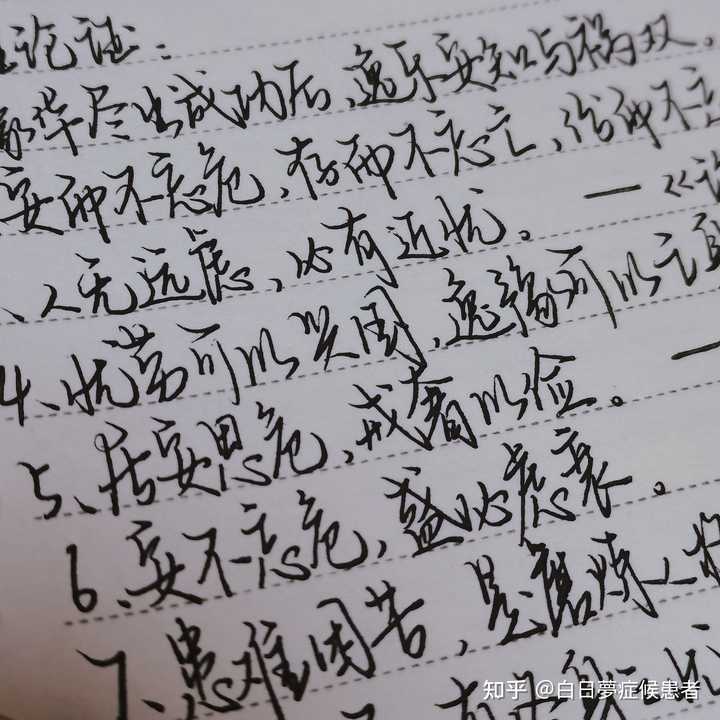 论证：
豪华尽出成功后，逸乐安知与祸双。
安而不忘危，存而不忘亡，治而不忘
、人无远虑，必有近忧。——《
4、忧劳可以兴国，逸豫可以亡
5、居安思危，戒奢以俭。—
6、安不忘危，盛必虑衰。
7、患难困苦，是磨炼人格
知乎 @白日夢症候患者